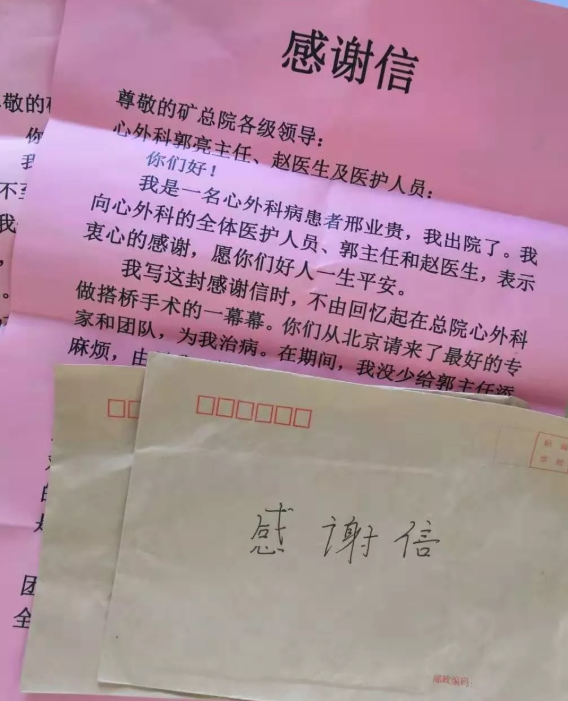 感谢信
尊敬的矿总院各级领导：
心外科郭亮主任、赵医生及医护人员：
你们好！
我是一名心外科病患者邢业贵，我出院了。我
向心外科的全体医护人员、郭主任和赵医生，表示
衷心的感谢，愿你们好人一生平安。
我写这封感谢信时，不由回忆起在总院心外科
做搭桥手术的一幕幕。你们从北京请来了最好的专
家和团队，为我治病。在期间，我没少给郭主任添
麻烦，由
敬的矿
你
我
不至
我
的
团
全
感谢信
邮政编码：